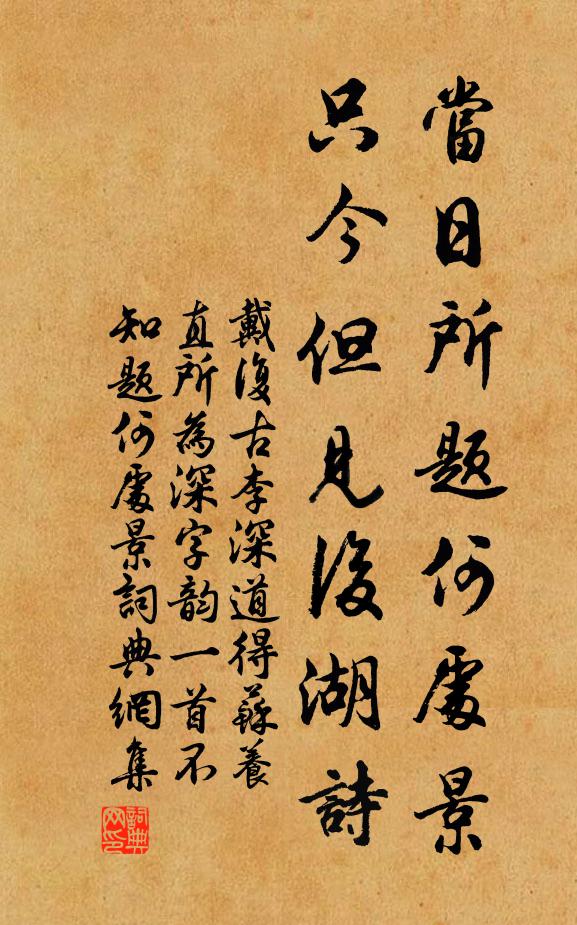 當日所题何處景
只今但見後湖詩
戴復古李深道得蘇養
直所為深字韵一首不
知题何處景詞典網集
詞典網印